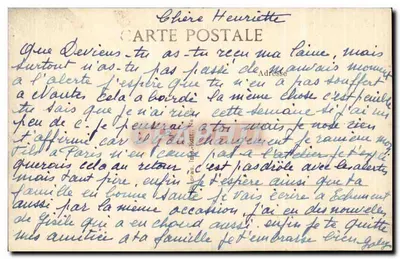 Chère Henriette
CARTE POSTALE
Que Deviens-tu as-tu reçu ma laine, mais
surtout n'as-tu pas passé de mauvais moment
à l'alerte j'espère que tu n'en a pas souffert
Adresse
a Nantes cela a bardé la même chose c'est pénible
tu sais que je n'ai rien cette semaine si j'ai un
peu de je penserai a toi mais je nose rien
t'affirmer car il y a du changement je
Paris n'en pas a l'atelier je t'ex
querais cela au retour c'est pas drôle avec les alertes
mais tant pire, enfin j'espère ainsi que ta
famille en bonne santé je vais écrire a
aussi par la même occasion j'ai eu des nouvelles
de Gisèle qui a eu chaud aussi. enfin je te quitte
mes amitiés a ta famille je t'embrasse bien